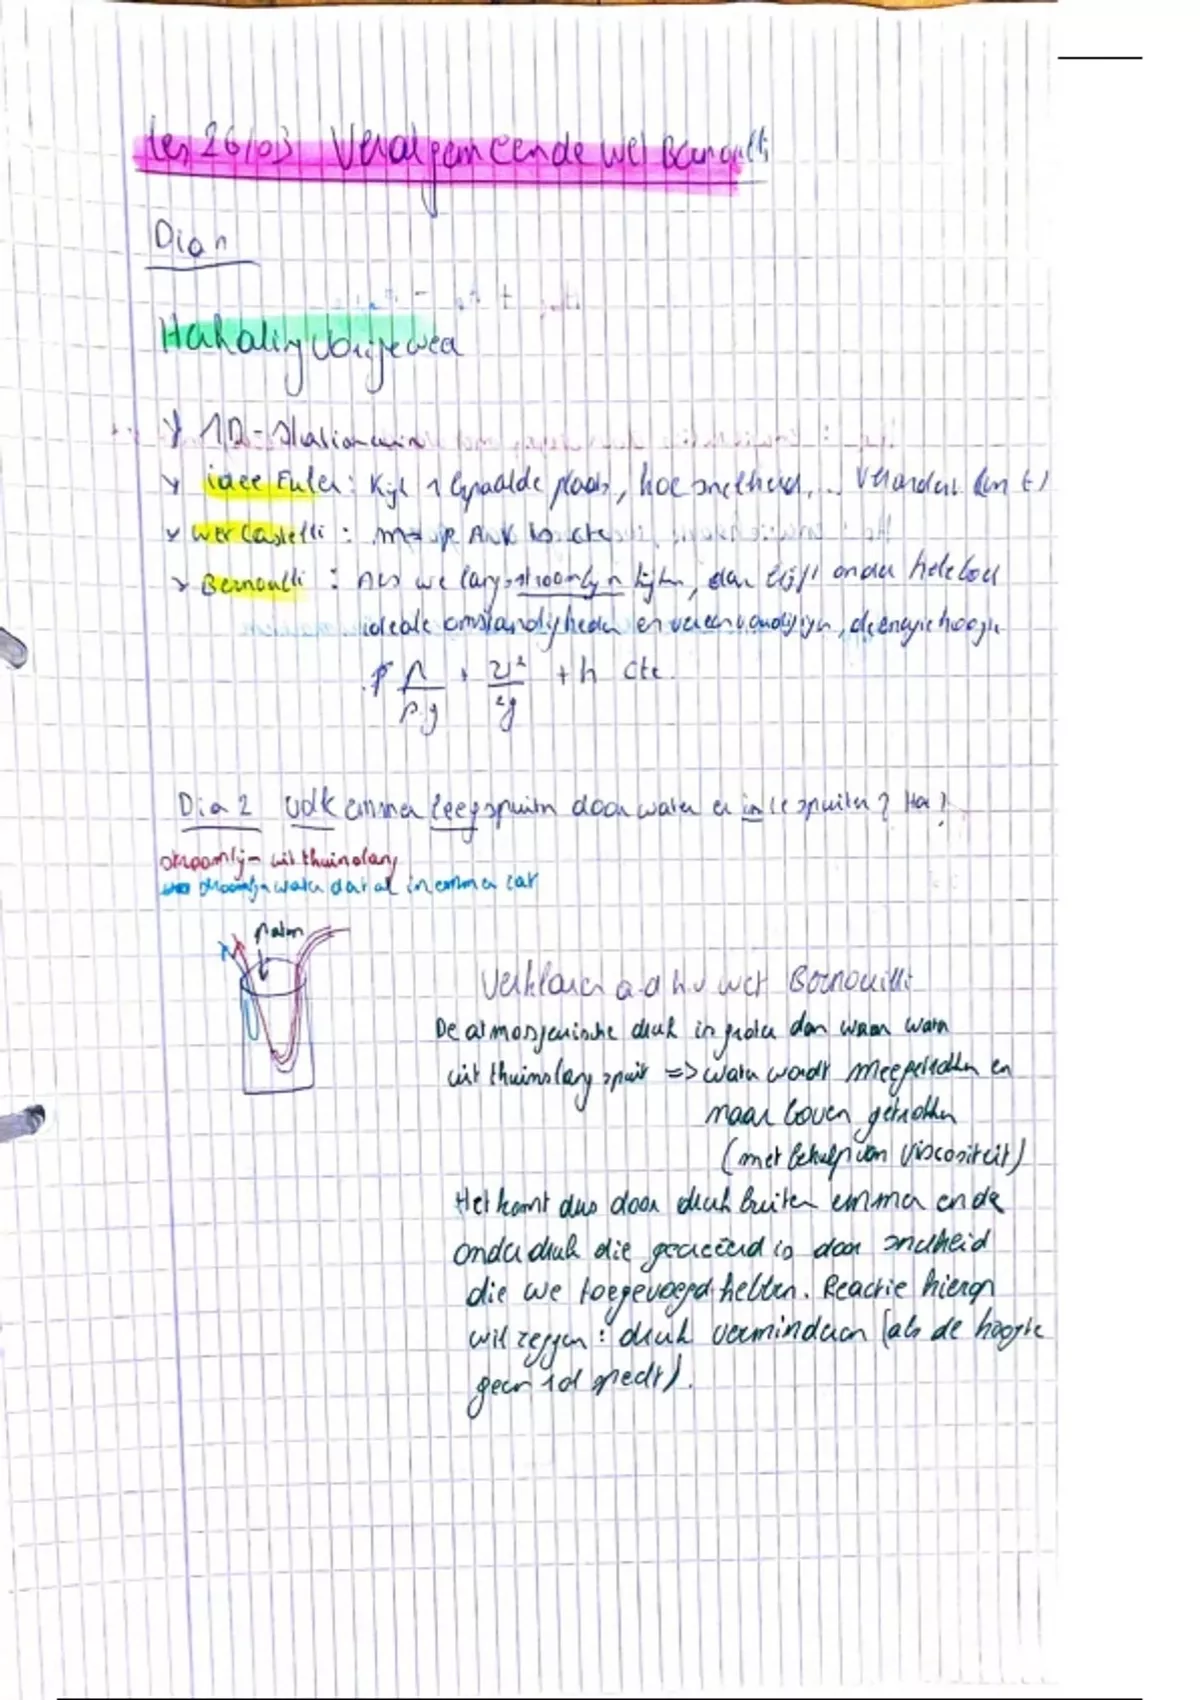 les 26/03 Veralgemeende wet Bernouilli
Dia 1
Herhaling vorige les
> 1D-Stationair
> idee Euler: Kijk 1 bepaalde plaats, hoe snelheid, ... verandert (in t)
> Wet Castelli : is cte
> Bernoulli : Als we langs stroomlijn kijken, dan blijft onder heleboel
ideale omstandigheden en vereenvoudigingen, de energiehoogte
p/ρ.g + v²/2g + h cte.
Dia 2 Volk emmer leegspuiten door water er in te spuiten? Hoe?
stroomlijn uit tuinslang
stroomlijn water dat al in emmer zat
patm
Verklaren a.d.h.v wet Bernouilli
De atmosferische druk is groter dan waar water
uit thuinslang spuit => water wordt meegetrokken en
naar boven getrokken
(met behulp van viscositeit)
Het komt dus door druk buiten emmer en de
onderdruk die gecreëerd is door snelheid
die we toegevoegd hebben. Reactie hierop
wil zeggen : druk verminderen (als de hoogte
geen rol speelt).